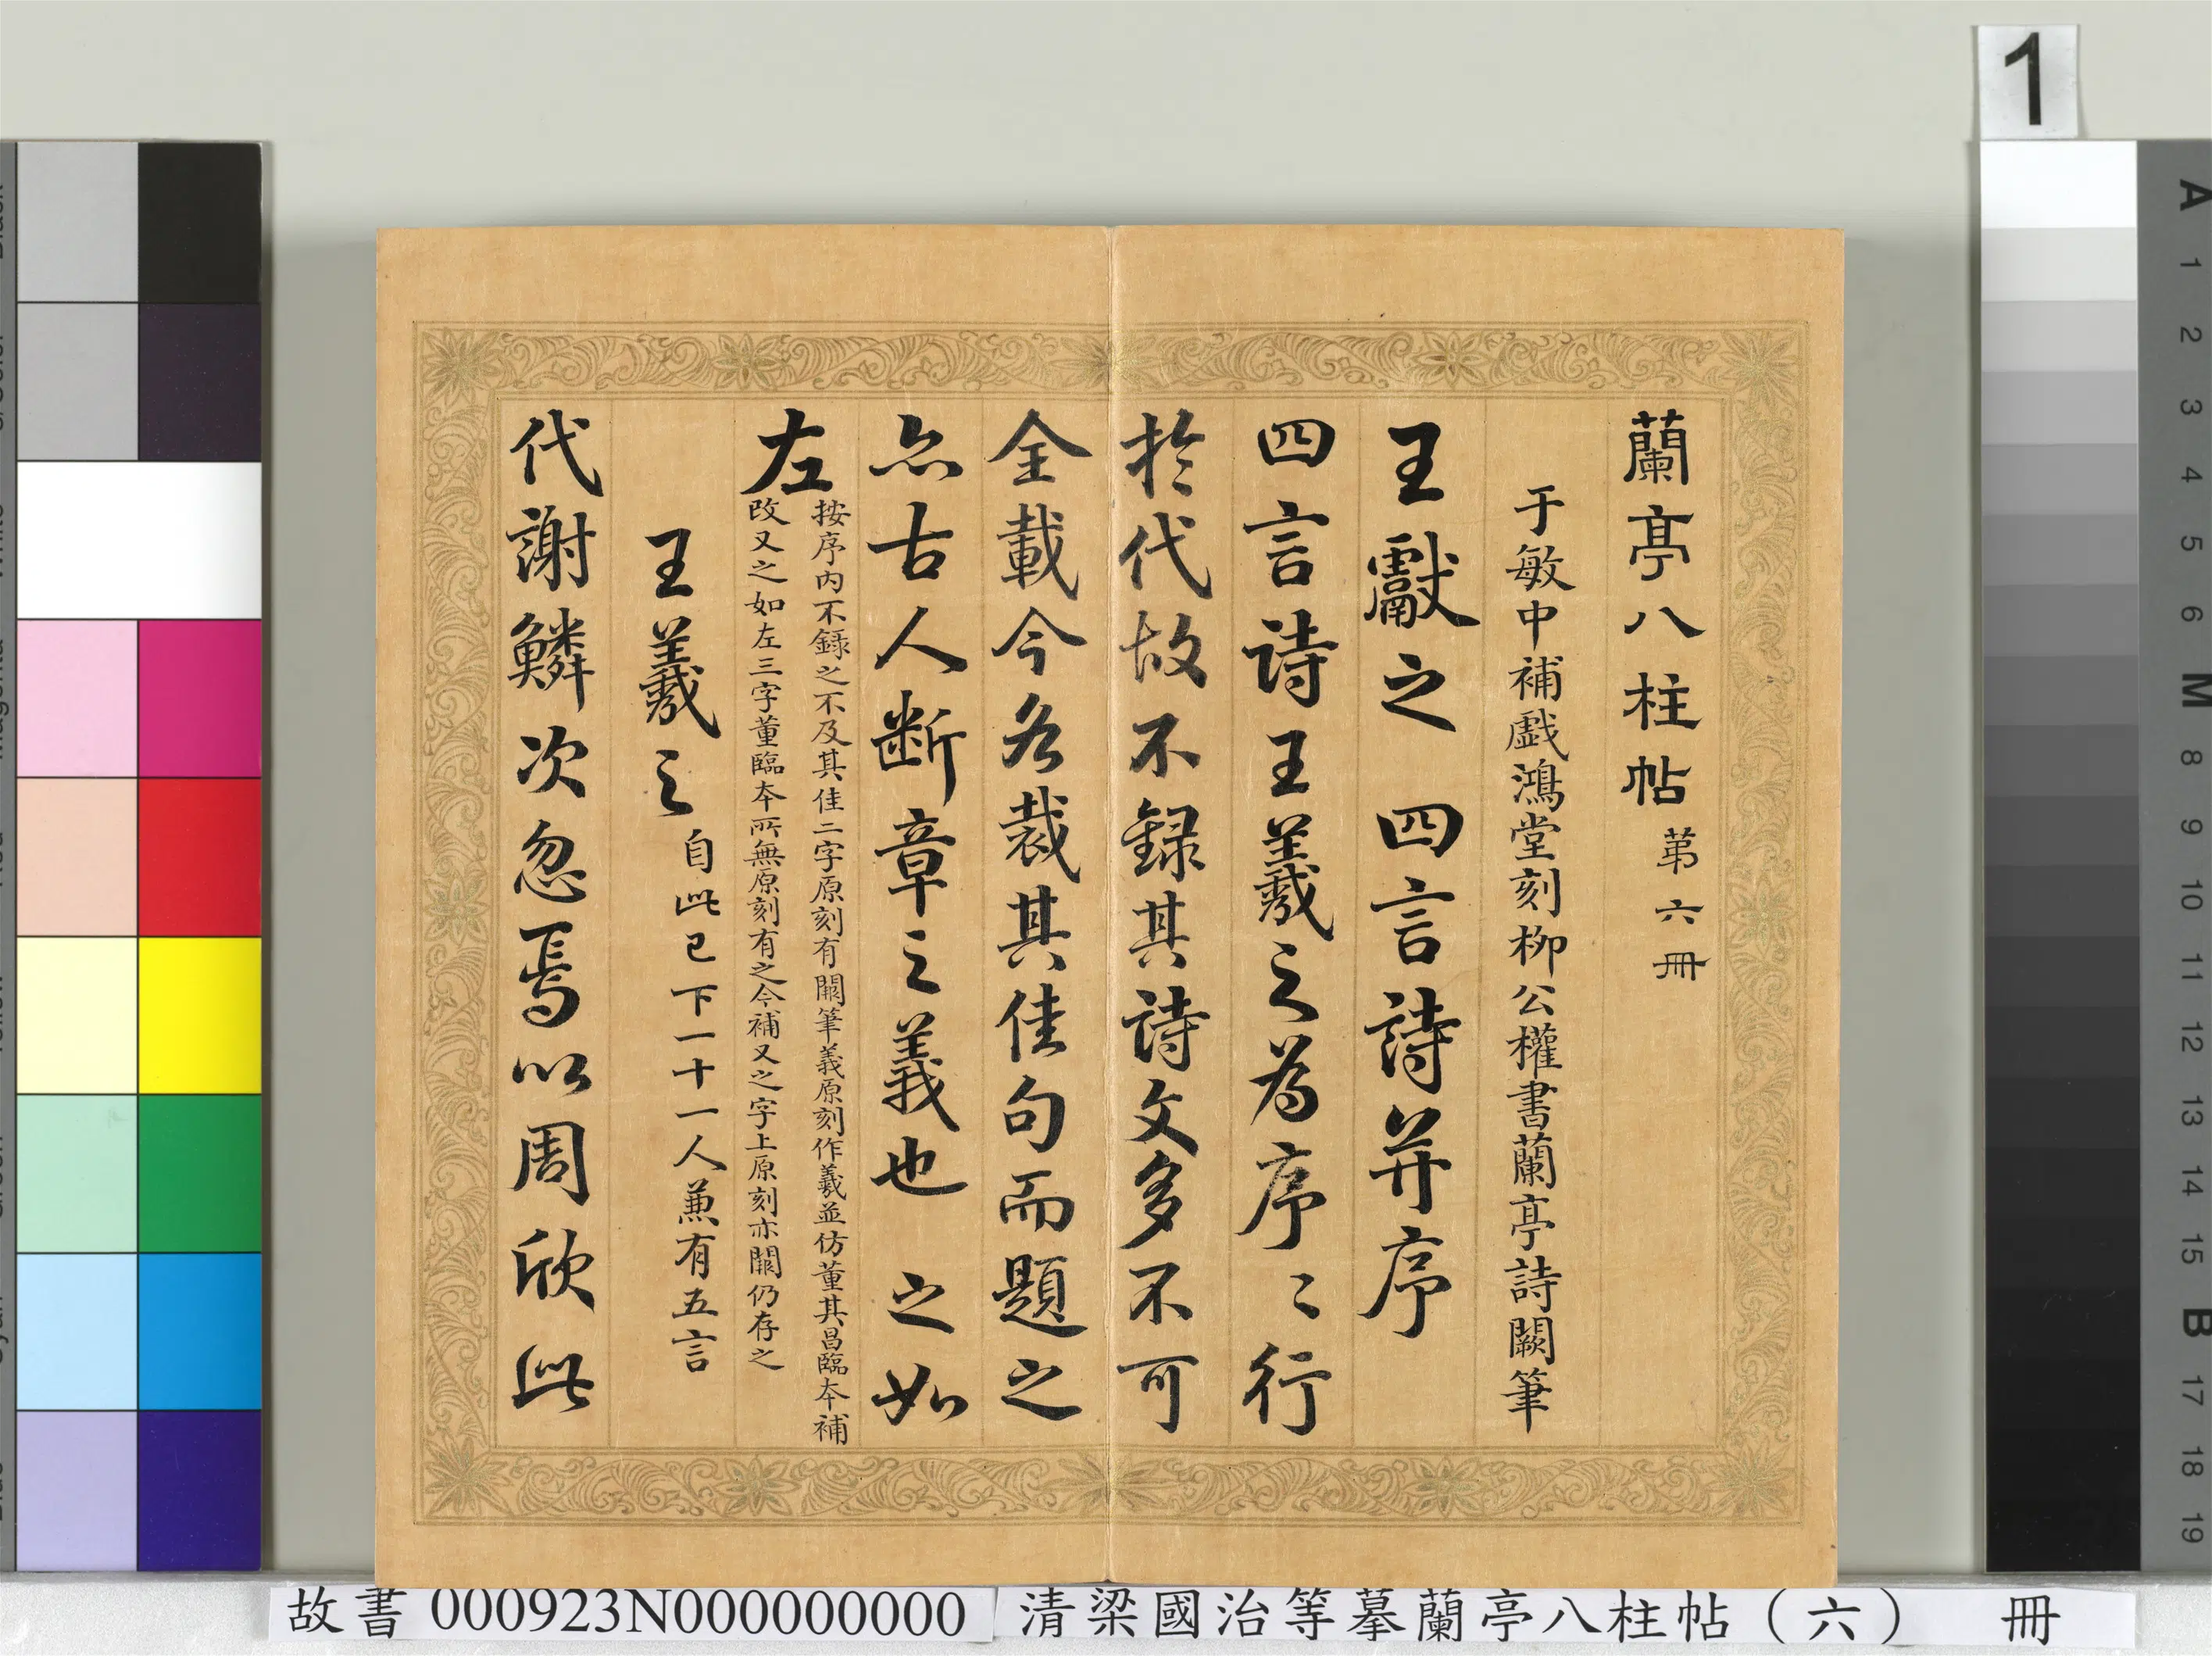 1
蘭亭八柱帖 苐六冊
于敏中補戲鴻堂刻柳公權書蘭亭詩闕筆
王獻之 四言詩并序
四言詩王羲之為序〻行
於代故不録其詩文多不可
全載今各裁其佳句而題之
亦古人断章之義也 之如
左
按序內不錄之不及其佳二字原刻有闕筆義原刻作羲並仿董其昌臨本補
改又之如左三字董臨本所無原刻有之今補又之字上原刻亦闕仍存之
王羲之 自此已下一十一人兼有五言
代謝鱗次忽焉以周欣此
故書 000923N000000000 清梁國治等摹蘭亭八柱帖（六） 冊
A 1 2 3 4 5 6 M 8 9 10 11 12 13 14 15 B 17 18 19